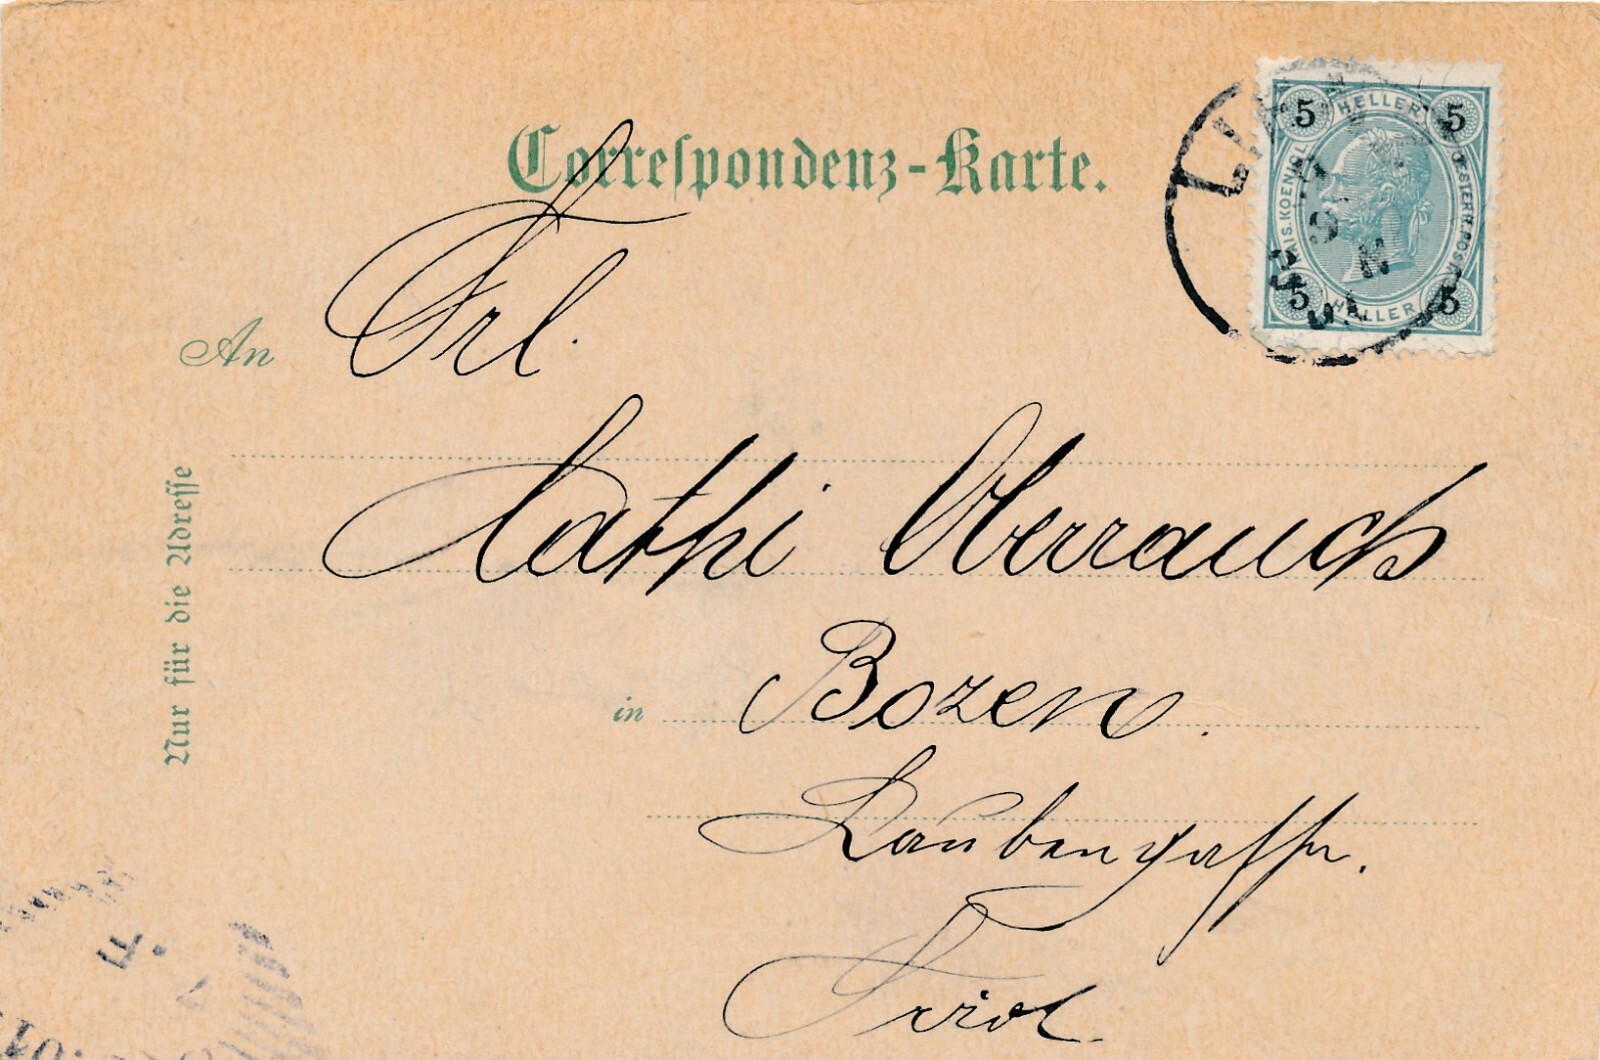 Correspondenz-Karte.
5 HELLER 5
KAIS. KOENIGL. OESTERR. POST
5 HELLER 5
An Frl.
Cathi Oberrauch
in Bozen.
Laubengasse.
Tirol.
Nur für die Adresse